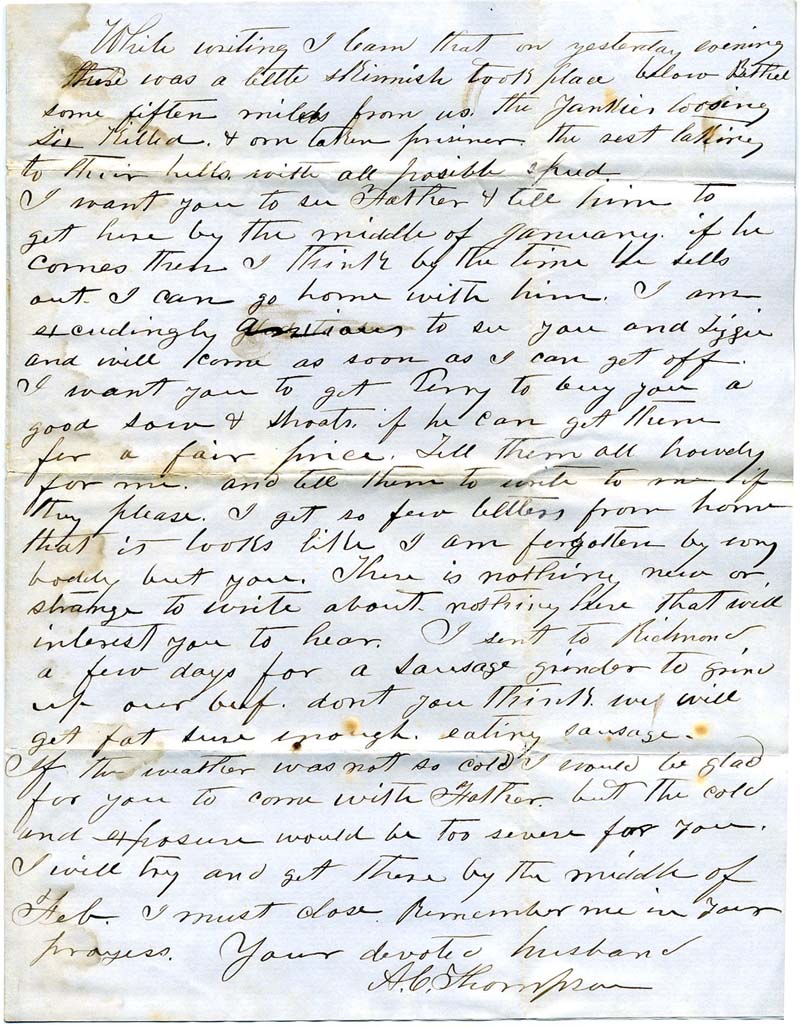 While writing I learn that on yesterday evening
there was a little skirmish took place below Bethel
some fiften miles from us. the Yankies loosing
six killed. & one taken prisiner. the rest taking
to their hills. with all posible speed
I want you to see Father & tell him to
get here by the middle of January. if he
comes then I think by the time he sells
out. I can go home with him. I am
excudingly to see you and Lizzie
and will come as soon as I can get off.
I want you to get Perry to buy you a
good sow & shoats. if he can get them
for a fair price. Tell them all howdy
for me. and tell them to write to me if
they please. I get so few letters from home
that it looks like I am forgotten by evry
boddy but you. There is nothing new or
strange to write about. nothing here that will
interest you to hear. I sent to Richmond
a few days for a sausage grinder to grind
up our beef. dont you think we will
get fat sure enough. eating sausage.
If the weather was not so cold I would be glad
for you to come with Father. but the cold
and exposure would be too severe for you.
I will try and get there by the middle of
Feb. I must close. Remember me in your
prayers. Your devoted husband
A. C. Thompson